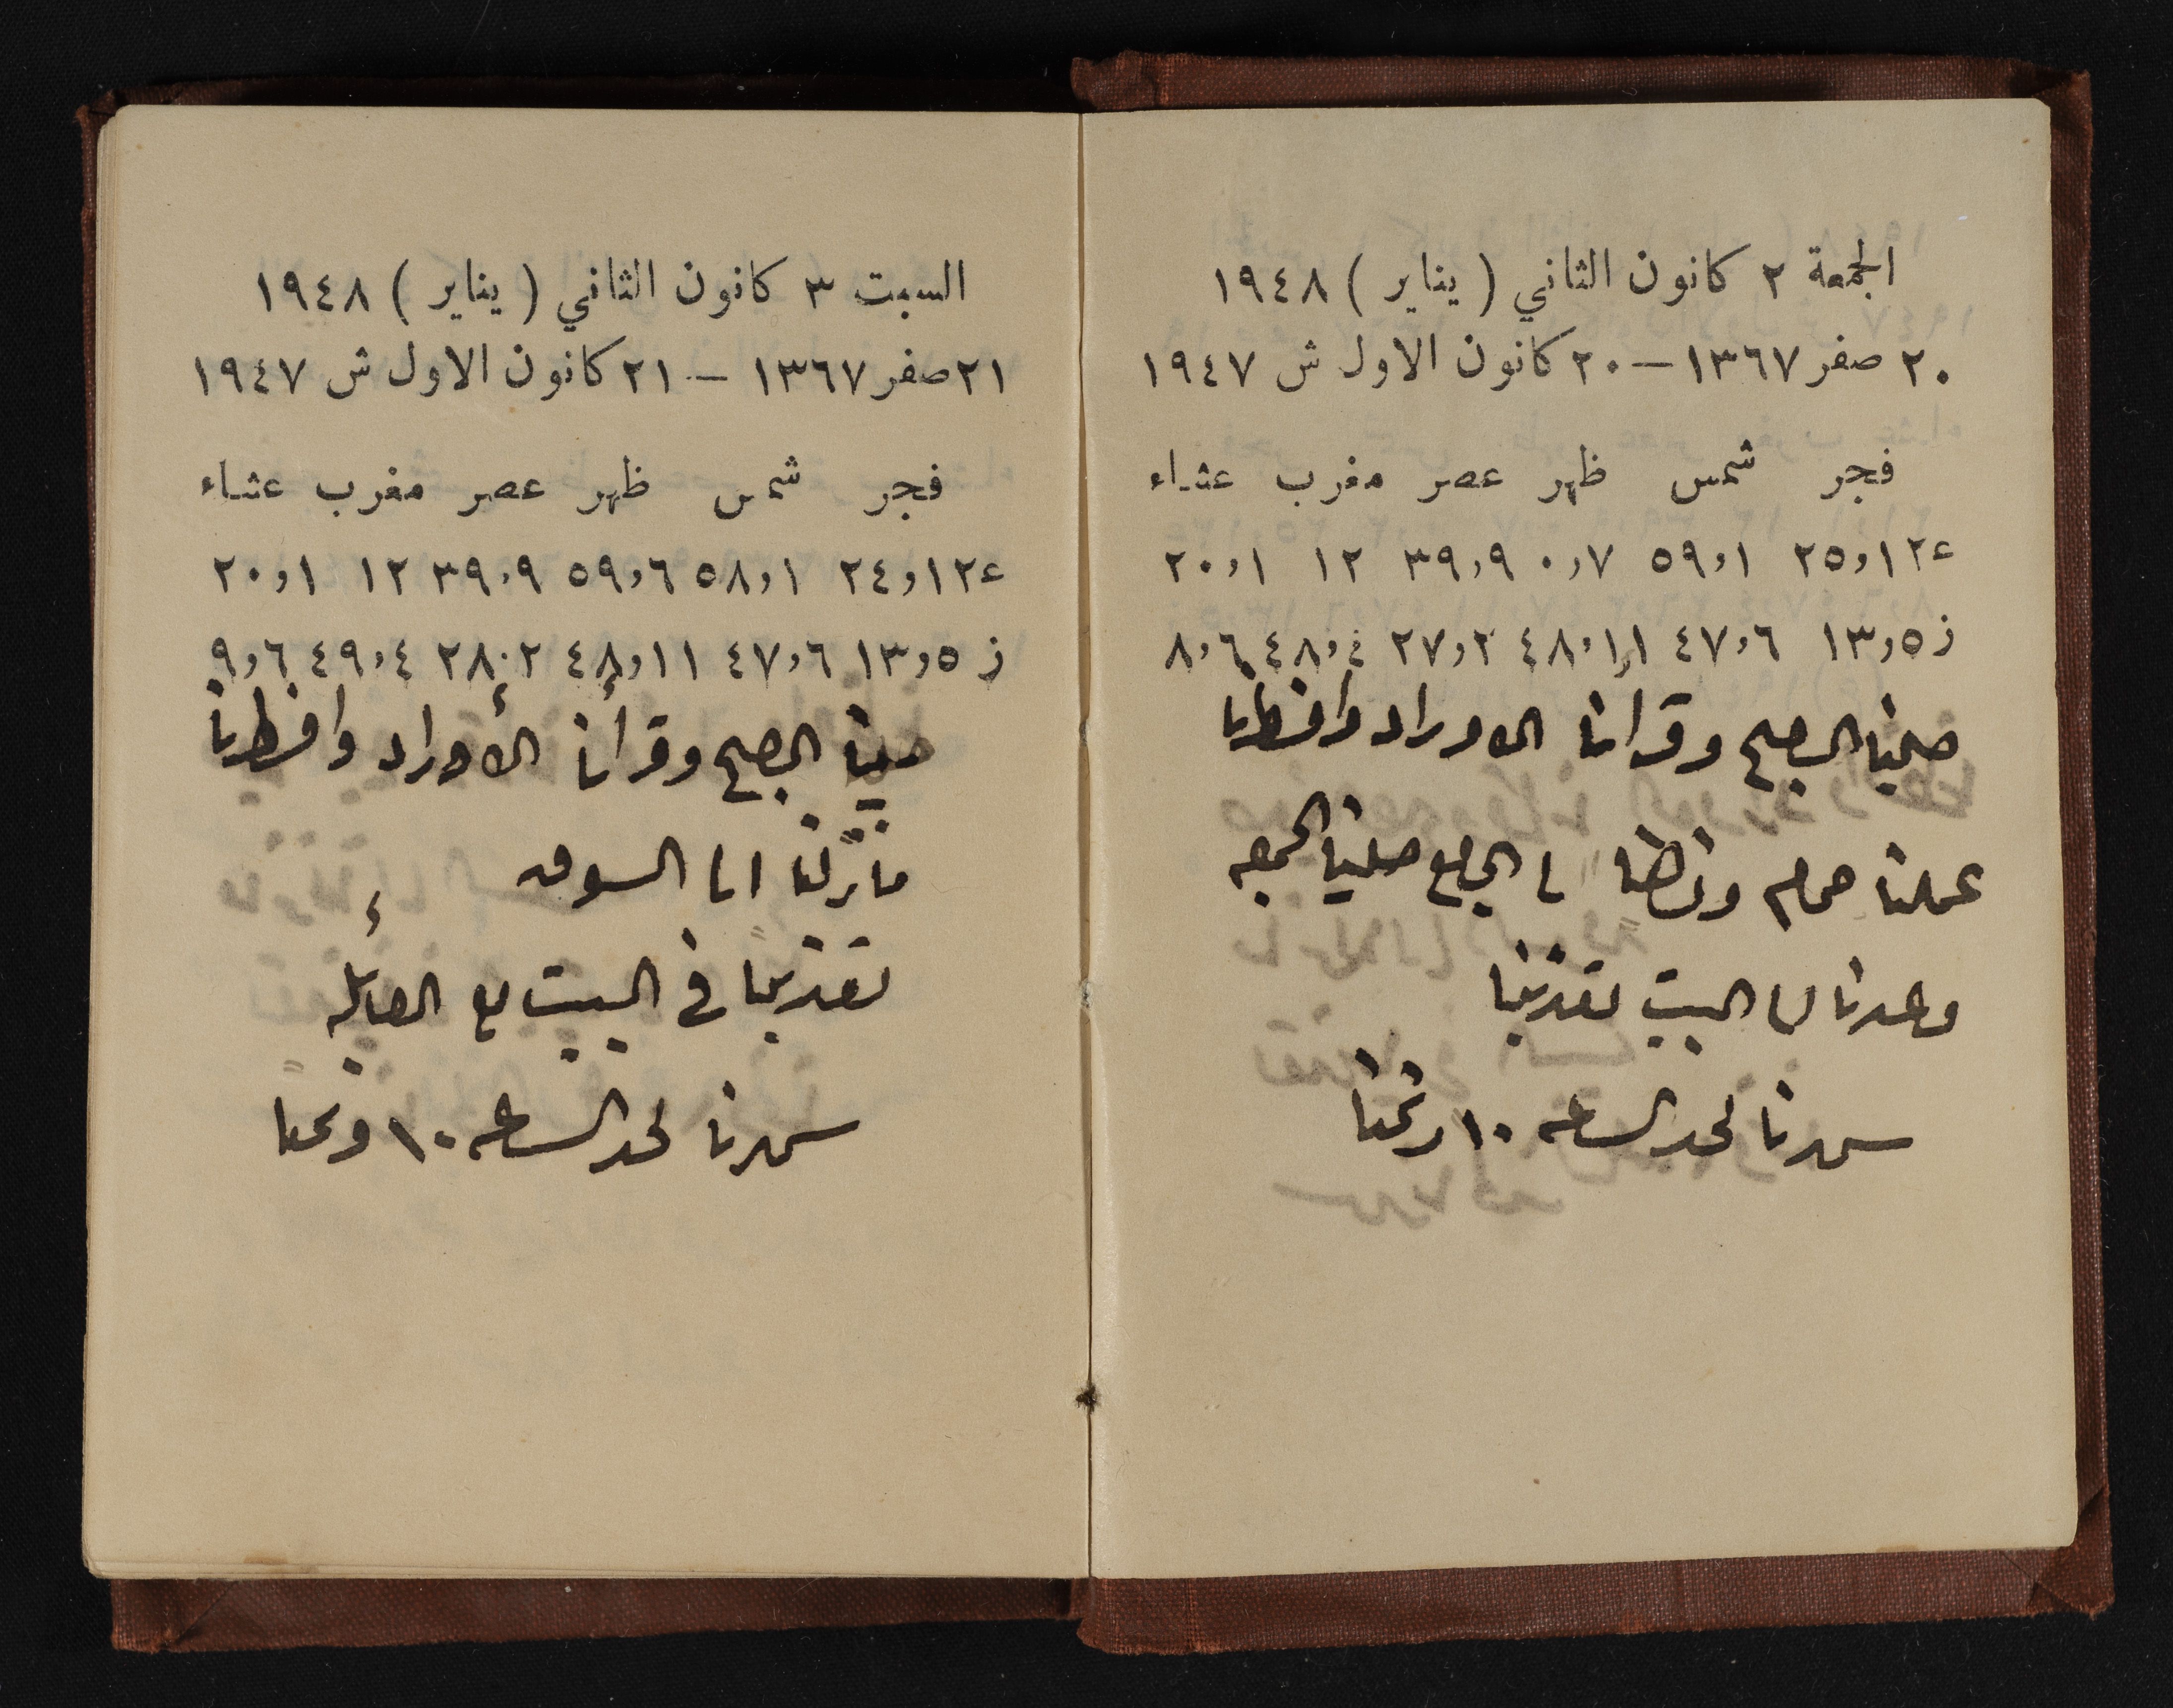 الجمعة ٢ كانون الثاني ( يناير ) ١٩٤٨
٢٠ صفر ١٣٦٧ – ٢٠ كانون الاول ش ١٩٤٧
فجر شمس ظهر عصر مغرب عشاء
ع ١٢,٢٥ ١,٥٩ ٧,٠ ٩,٣٩ ١٢ ١,٢٠
ز ٥,١٣ ٦,٤٧ ١١,٤٨ ٢,٢٧ ٤,٤٨ ٦,٨
صلينا الصبح وقرأنا الاوراد وافطرنا
عملنا حمام ونزلنا الجامع صلينا الجمعه
وعدنا الى البيت تغدينا
سهرنا لحد الساعه ١٠ ونمنا
السبت ٣ كانون الثاني ( يناير ) ١٩٤٨
٢١ صفر ١٣٦٧ – ٢١ كانون الاول ش ١٩٤٧
فجر شمس ظهر عصر مغرب عشاء
ع ١٢,٢٤ ١,٥٨ ٦,٥٩ ٩,٣٩ ١٢ ١,٢٠
ز ٥,١٣ ٦,٤٧ ١١,٤٨ ٢,٢٨ ٤,٤٩ ٦,٩
صلينا الصبح وقرأنا الأوراد وافطرنا
ما نزلنا السوق
تغدينا في البيت مع العائله
سهرنا لحد الساعه ١٠ ونمنا